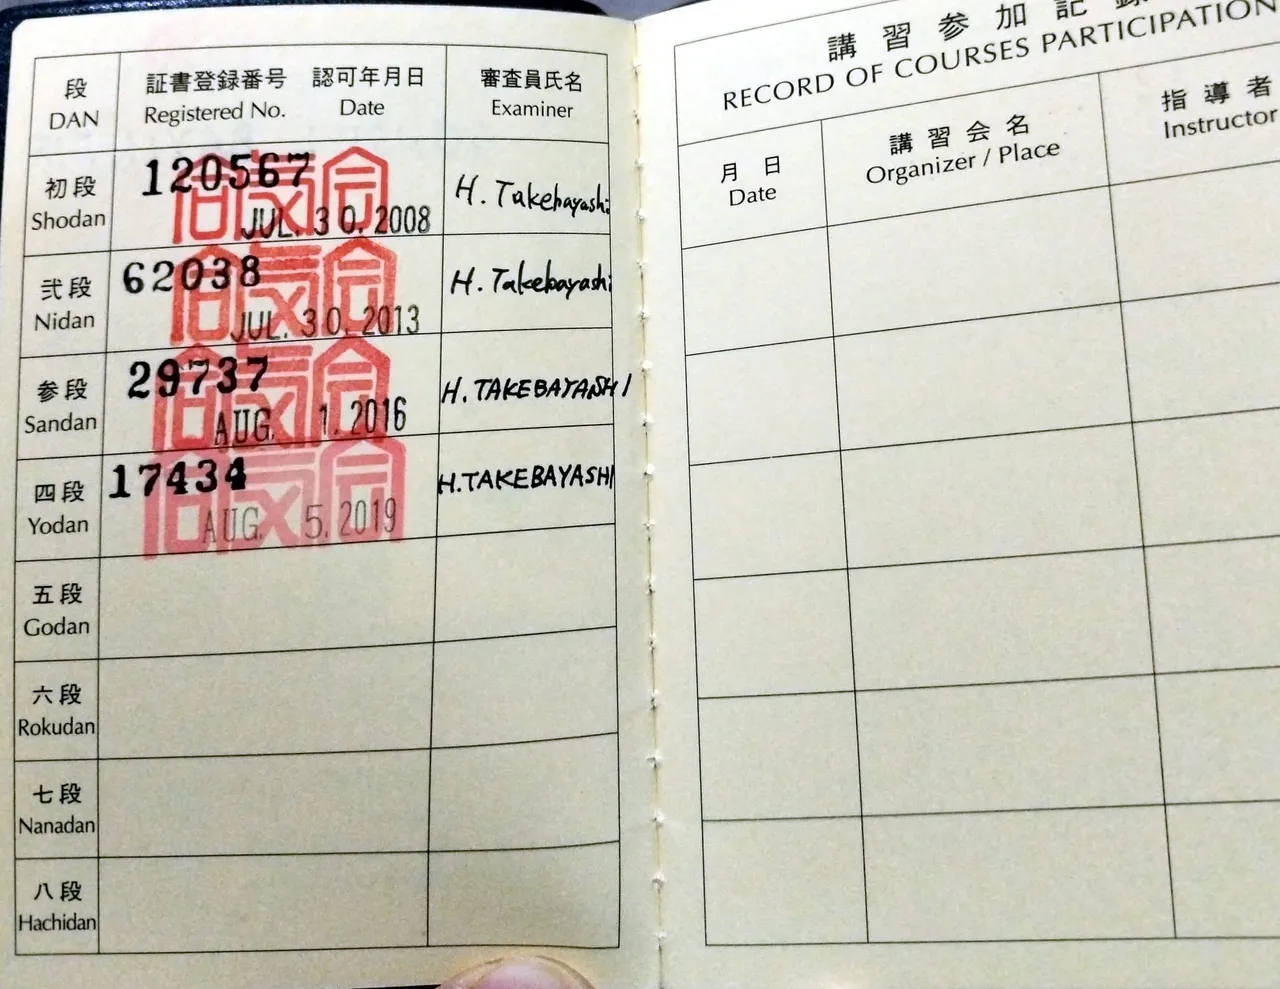 段
DAN
証書登録番号 認可年月日
Registered No. Date
審査員氏名
Examiner
初段
Shodan
120567
合気会
JUL. 30. 2008
H. Takebayashi
弐段
Nidan
62038
合気会
JUL. 30. 2013
H. Takebayashi
参段
Sandan
29737
合気会
AUG. 1. 2016
H. TAKEBAYASHI
四段
Yodan
17434
合気会
AUG. 5. 2019
H. TAKEBAYASHI
五段
Godan
六段
Rokudan
七段
Nanadan
八段
Hachidan
講習参加記録
RECORD OF COURSES PARTICIPATION
月日
Date
講習会名
Organizer / Place
指導者
Instructor